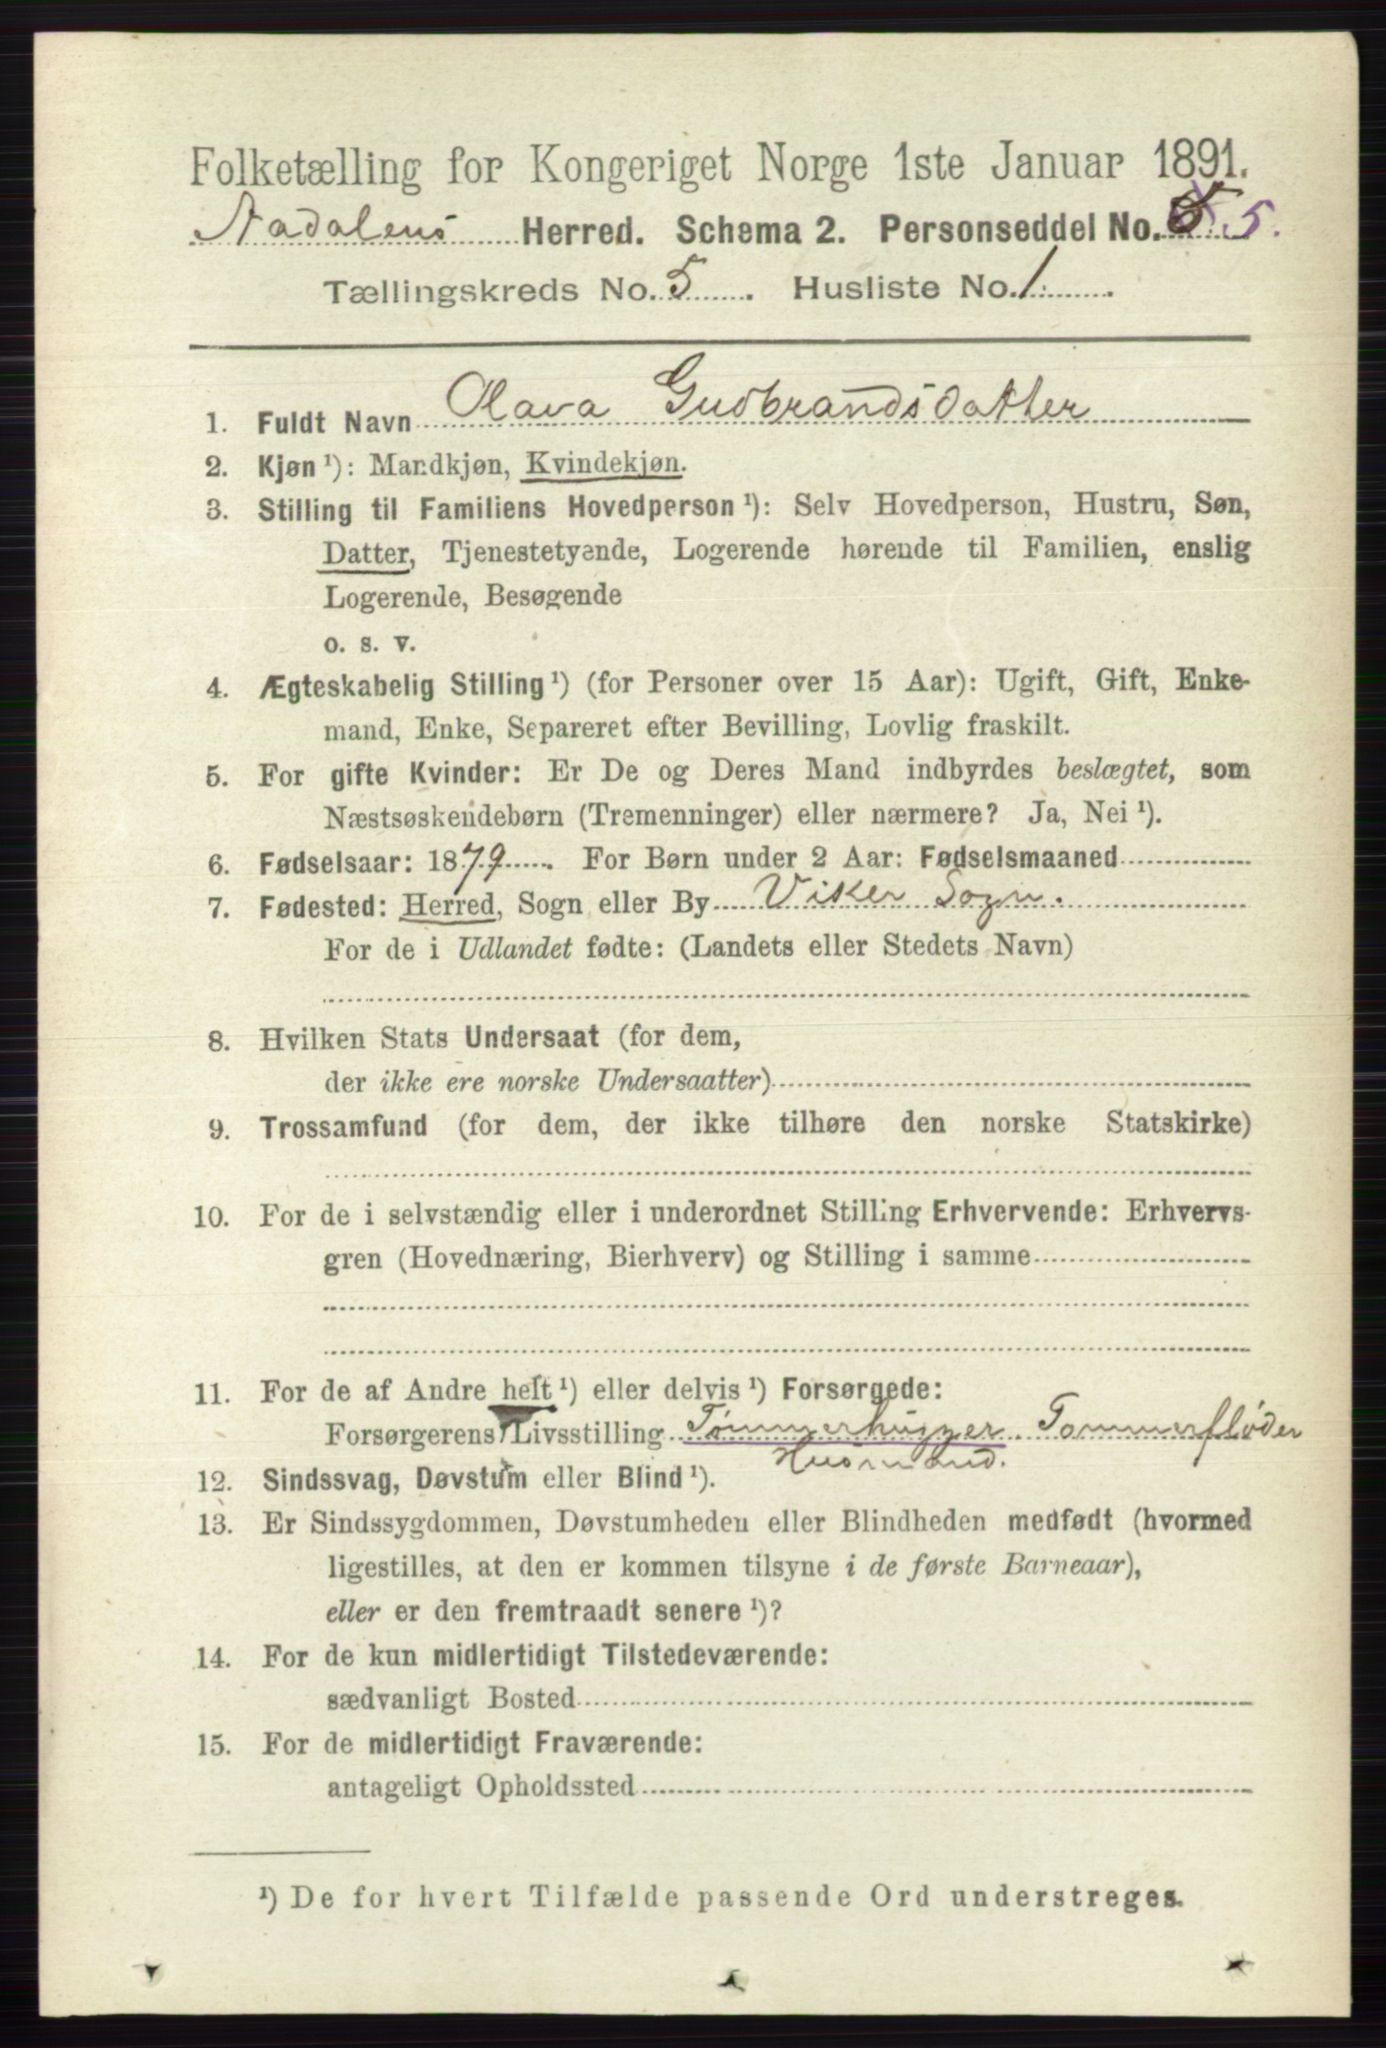 Folketælling for Kongeriget Norge 1ste Januar 1891.
Aadalens Herred. Schema 2. Personseddel No. 5.
Tællingskreds No. 5. Husliste No. 1.
1. Fuldt Navn Olava Gudbrandsdatter
2. Kjøn ¹): Mandkjøn, Kvindekjøn.
3. Stilling til Familiens Hovedperson ¹): Selv Hovedperson, Hustru, Søn,
Datter, Tjenestetyende, Logerende hørende til Familien, enslig
Logerende, Besøgende
o. s. v.
4. Ægteskabelig Stilling ¹) (for Personer over 15 Aar): Ugift, Gift, Enke-
mand, Enke, Separeret efter Bevilling, Lovlig fraskilt.
5. For gifte Kvinder: Er De og Deres Mand indbyrdes beslægtet, som
Næstsøskendebørn (Tremenninger) eller nærmere? Ja, Nei ¹).
6. Fødselsaar: 1879. For Børn under 2 Aar: Fødselsmaaned
7. Fødested: Herred, Sogn eller By Viker Sogn.
For de i Udlandet fødte: (Landets eller Stedets Navn)
8. Hvilken Stats Undersaat (for dem,
der ikke ere norske Undersaatter)
9. Trossamfund (for dem, der ikke tilhøre den norske Statskirke)
10. For de i selvstændig eller i underordnet Stilling Erhvervende: Erhvervs-
gren (Hovednæring, Bierhverv) og Stilling i samme
11. For de af Andre helt ¹) eller delvis ¹) Forsørgede:
Forsørgerens Livsstilling Tømmerhugger. Tømmerfløder
Husmand.
12. Sindssvag, Døvstum eller Blind ¹).
13. Er Sindssygdommen, Døvstumheden eller Blindheden medfødt (hvormed
ligestilles, at den er kommen tilsyne i de første Barneaar),
eller er den fremtraadt senere ¹)?
14. For de kun midlertidigt Tilstedeværende:
sædvanligt Bosted
15. For de midlertidigt Fraværende:
antageligt Opholdssted
¹) De for hvert Tilfælde passende Ord understreges.